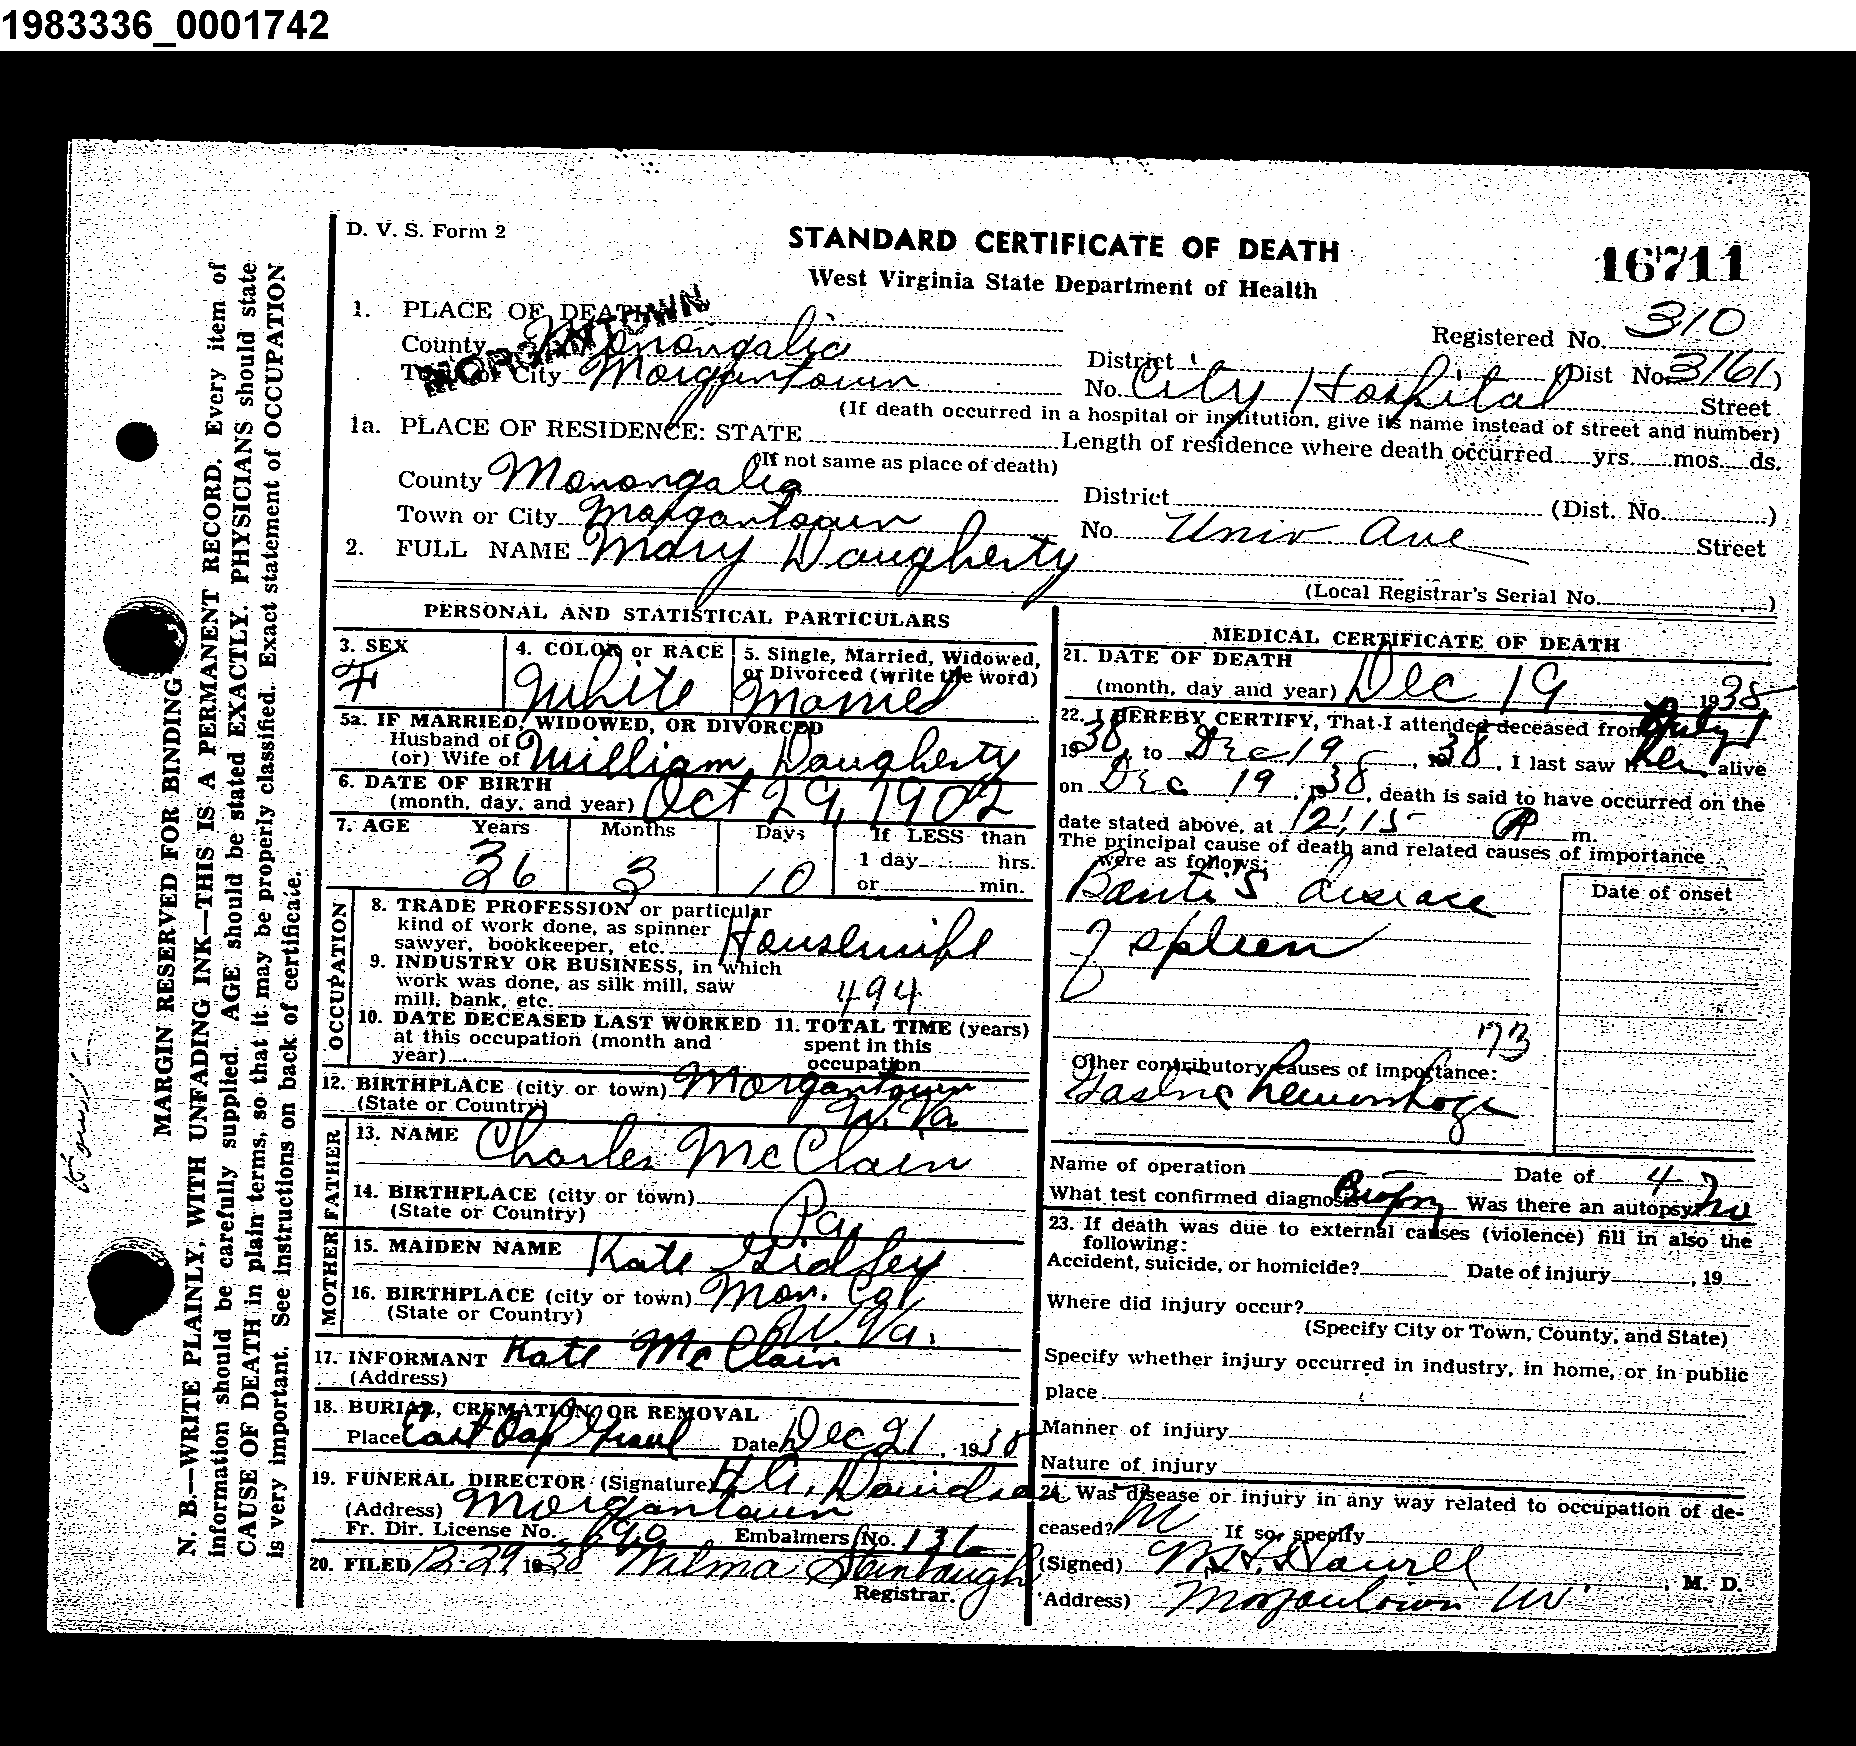 1983336_0001742
D. V. S. Form 2
STANDARD CERTIFICATE OF DEATH
16711
West Virginia State Department of Health
1. PLACE OF DEATH
MORGANTOWN
Registered No. 310
County Monongalia
District (Dist No. 3161)
Town or City Morgantown
No. City Hospital Street
(If death occurred in a hospital or institution, give its name instead of street and number)
1a. PLACE OF RESIDENCE: STATE
Length of residence where death occurred yrs. mos. ds.
(If not same as place of death)
County Monongalia
District (Dist. No. )
Town or City Morgantown
No. Univ Ave Street
2. FULL NAME Mary Daugherty
(Local Registrar's Serial No. )
PERSONAL AND STATISTICAL PARTICULARS
3. SEX F
4. COLOR or RACE White
5. Single, Married, Widowed, or Divorced (write the word) Married
5a. IF MARRIED, WIDOWED, OR DIVORCED
Husband of
(or) Wife of William Daugherty
6. DATE OF BIRTH
(month, day, and year) Oct 29, 1902
7. AGE Years Months Days If LESS than
36 3 10
1 day hrs.
or min.
OCCUPATION
8. TRADE PROFESSION or particular
kind of work done, as spinner
sawyer, bookkeeper, etc. Housewife
9. INDUSTRY OR BUSINESS, in which
work was done, as silk mill, saw
mill, bank, etc. 494
10. DATE DECEASED LAST WORKED
at this occupation (month and
year)
11. TOTAL TIME (years)
spent in this
occupation
12. BIRTHPLACE (city or town) Morgantown
(State or Country) W. Va
FATHER
13. NAME Charles McClain
14. BIRTHPLACE (city or town)
(State or Country) Pa
MOTHER
15. MAIDEN NAME Kate Gidley
16. BIRTHPLACE (city or town) Mon. Co
(State or Country) W. Va.
17. INFORMANT Kate McClain
(Address)
18. BURIAL, CREMATION OR REMOVAL
Place East Oak Grove Date Dec 21, 1938
19. FUNERAL DIRECTOR (Signature) Davidson
(Address) Morgantown
Fr. Dir. License No. 690 Embalmers No. 136
20. FILED 12-29 1938 Wilma
Registrar.
MEDICAL CERTIFICATE OF DEATH
21. DATE OF DEATH
(month, day and year) Dec 19 1938
22. I HEREBY CERTIFY, That I attended deceased from July 1
1938, to Dec 19, 1938, I last saw her alive
on Dec 19, 1938, death is said to have occurred on the
date stated above, at 12:15 P m.
The principal cause of death and related causes of importance
were as follows:
Date of onset
Banti's disease
of spleen
73
Other contributory causes of importance:
Gastric hemorrhage
Name of operation Date of 4
What test confirmed diagnosis Biopsy Was there an autopsy? No
23. If death was due to external causes (violence) fill in also the
following:
Accident, suicide, or homicide? Date of injury , 19
Where did injury occur?
(Specify City or Town, County, and State)
Specify whether injury occurred in industry, in home, or in public
place
Manner of injury
Nature of injury
24. Was disease or injury in any way related to occupation of de-
ceased? If so, specify
(Signed) , M. D.
(Address) Morgantown
MARGIN RESERVED FOR BINDING
N. B.—WRITE PLAINLY, WITH UNFADING INK—THIS IS A PERMANENT RECORD. Every item of
information should be carefully supplied. AGE should be stated EXACTLY. PHYSICIANS should state
CAUSE OF DEATH in plain terms, so that it may be properly classified. Exact statement of OCCUPATION
is very important. See instructions on back of certificate.